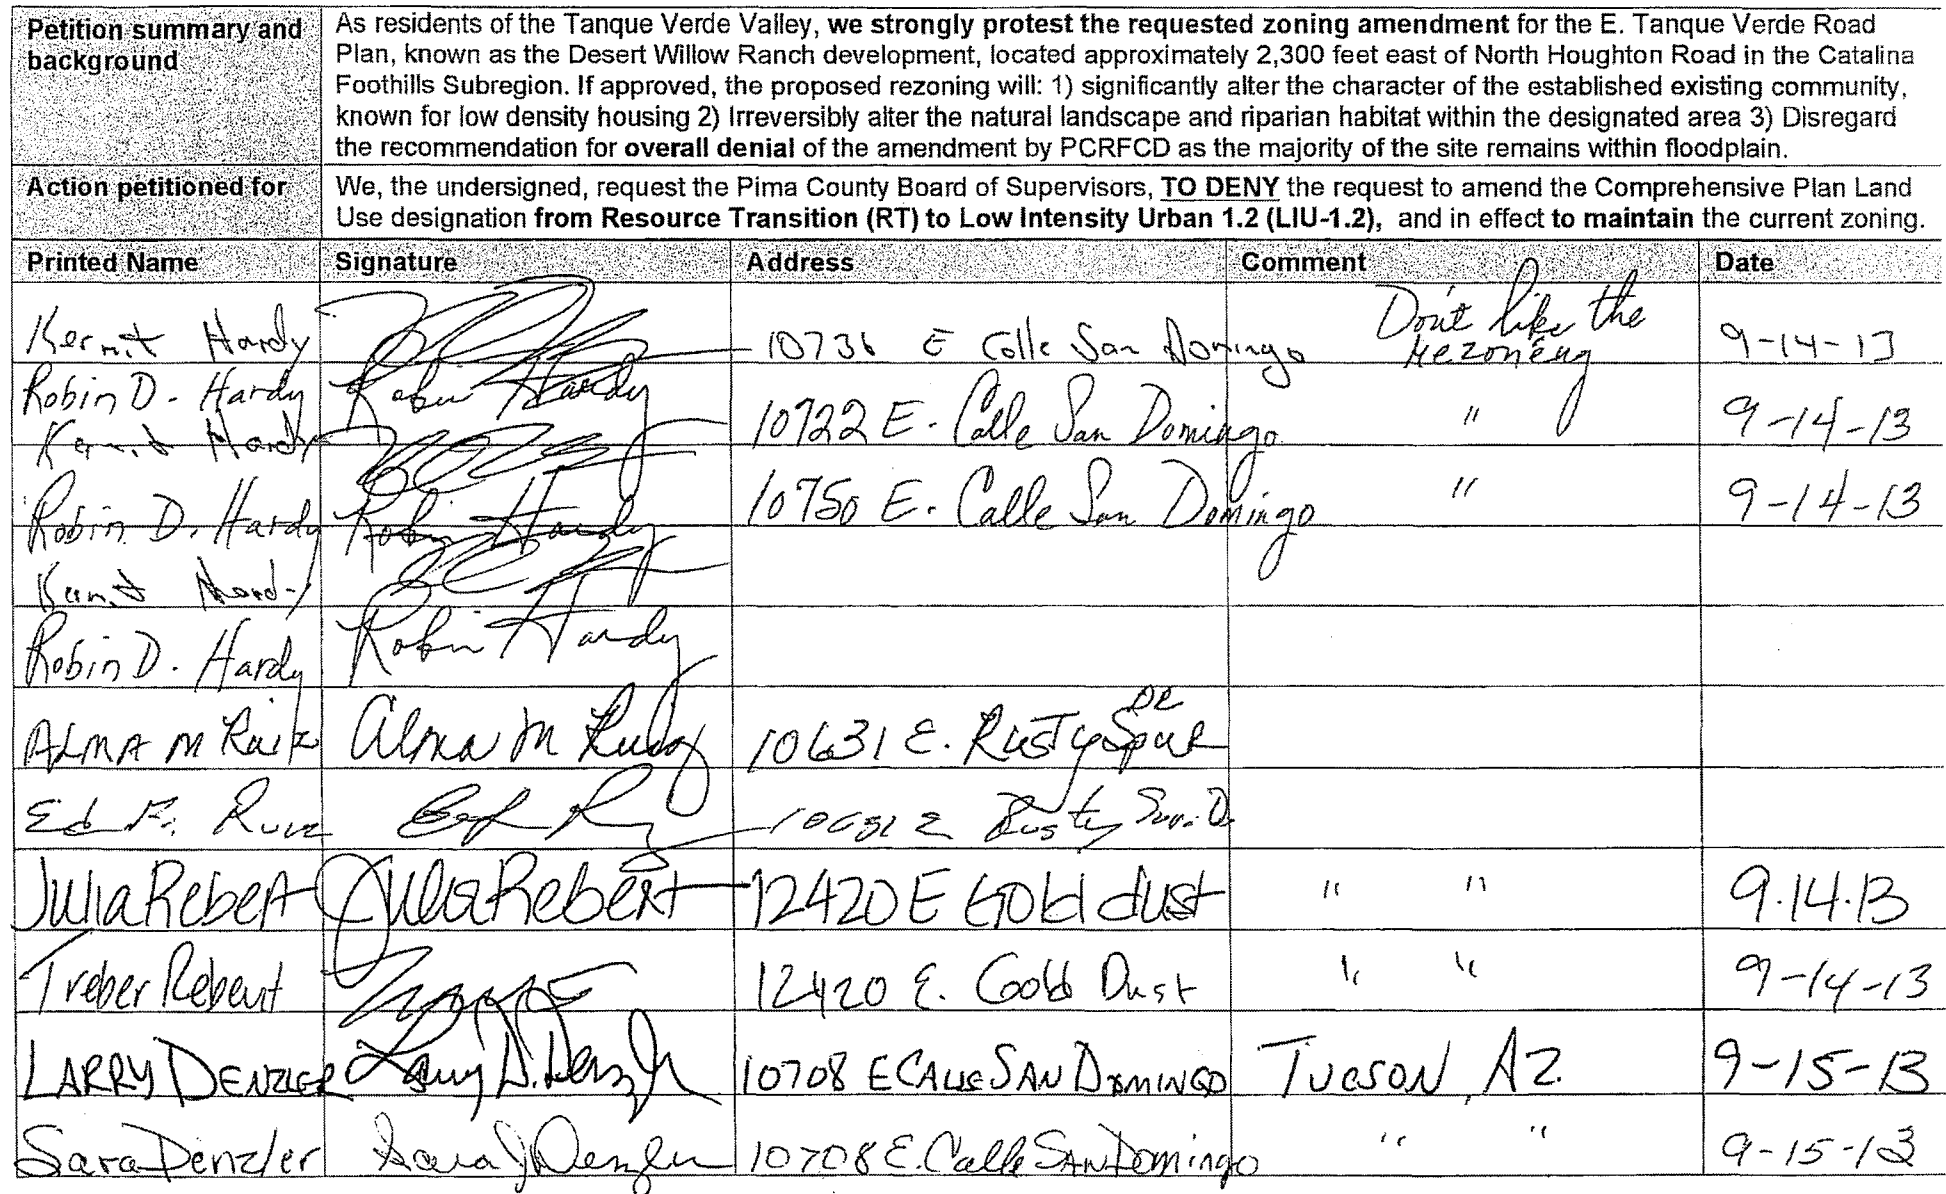 Petition summary and background
As residents of the Tanque Verde Valley, we strongly protest the requested zoning amendment for the E. Tanque Verde Road
Plan, known as the Desert Willow Ranch development, located approximately 2,300 feet east of North Houghton Road in the Catalina
Foothills Subregion. If approved, the proposed rezoning will: 1) significantly alter the character of the established existing community,
known for low density housing 2) Irreversibly alter the natural landscape and riparian habitat within the designated area 3) Disregard
the recommendation for overall denial of the amendment by PCRFCD as the majority of the site remains within floodplain.
Action petitioned for
We, the undersigned, request the Pima County Board of Supervisors, TO DENY the request to amend the Comprehensive Plan Land
Use designation from Resource Transition (RT) to Low Intensity Urban 1.2 (LIU-1.2), and in effect to maintain the current zoning.
Printed Name Signature Address Comment Date
Kermit Hardy 10736 E Calle San Domingo Don't like the rezoneing 9-14-13
Robin D. Hardy Robin Hardy 10722 E. Calle San Domingo " 9-14-13
Kermit Hardy
Robin D. Hardy Robin Hardy 10750 E. Calle San Domingo " 9-14-13
Kermit Hardy
Robin D. Hardy Robin Hardy
ALMA M Ruiz Alma M Ruiz 10631 E. Rusty Spur DR
Ed Ruiz 10631 E Rusty Spur D.
Julia Rebert Julia Rebert 12420 E Gold dust " " 9.14.13
Treber Rebert 12420 E. Gold Dust " " 9-14-13
LARRY DENZLER Larry D. Denzler 10708 E CALLE SAN DOMINGO TUCSON, AZ 9-15-13
Sara Denzler Sara J Denzler 10708 E. Calle SAN Domingo " " 9-15-13